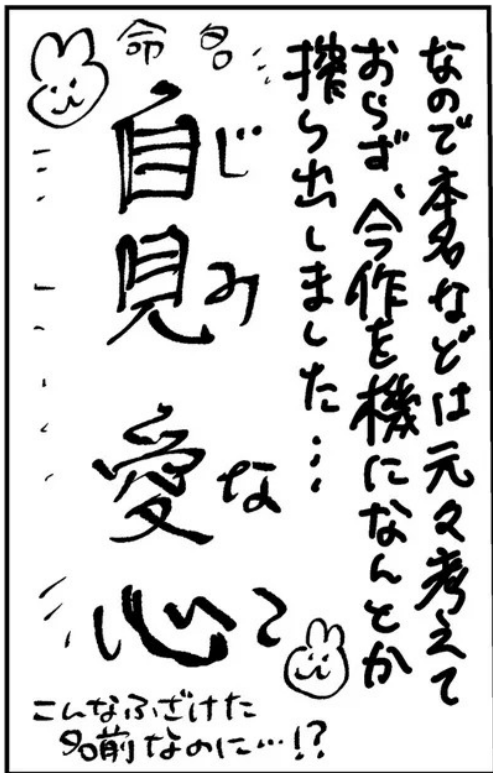 なので本名などは元々考えて
おらず、今作を機になんとか
搾り出しました…
命名
自見 愛心
じみ なこ
こんなふざけた
名前なのに…!?